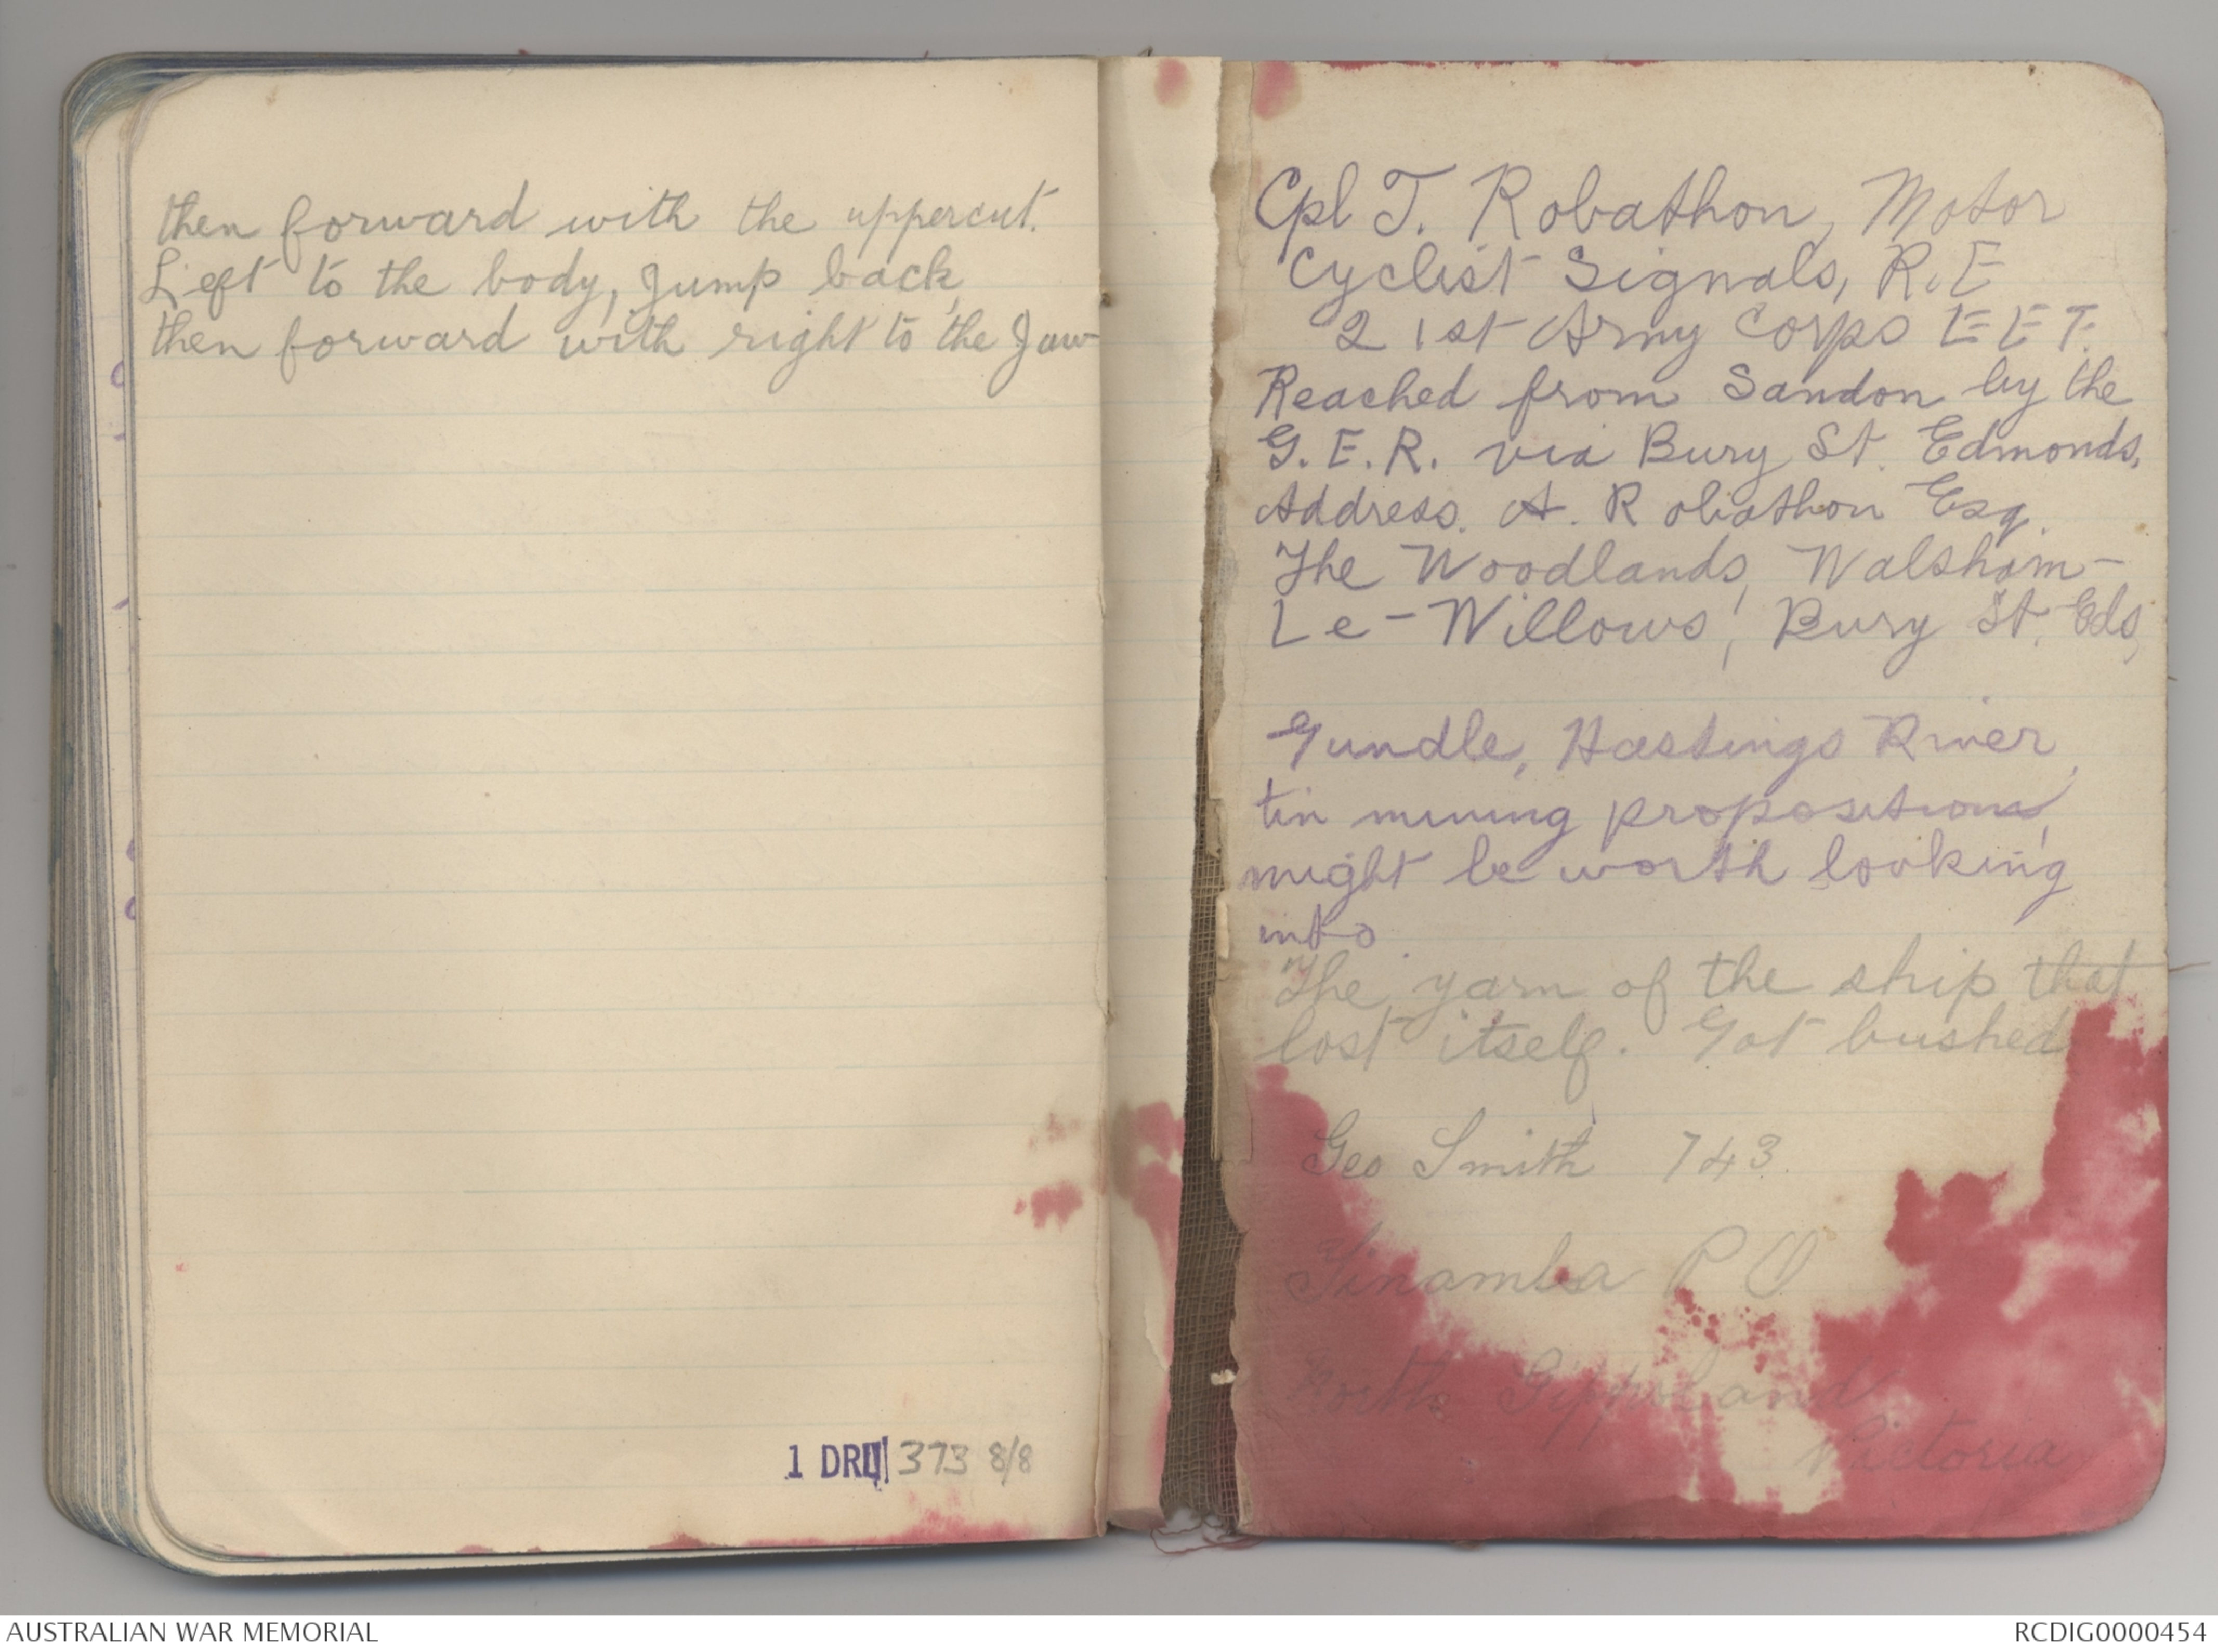 then forward with the uppercut.
Left to the body, Jump back,
then forward with right to the Jaw
1 DRL 373 8/8
Cpl T. Robathon, Motor
Cyclist Signals, R.E
21st Army Corps E E F.
Reached from Sandon by the
G.E.R. via Bury St. Edmonds,
Address. A. Robathon Esq.
The Woodlands, Walsham-
Le-Willows, Bury St. Eds,
Gundle, Hastings River,
tin mining propositions,
might be worth looking
into
The yarn of the ship that
lost itself. Got bushed
Geo Smith 743.
Tinamba P O
North Gippsland
Victoria
AUSTRALIAN WAR MEMORIAL
RCDIG0000454